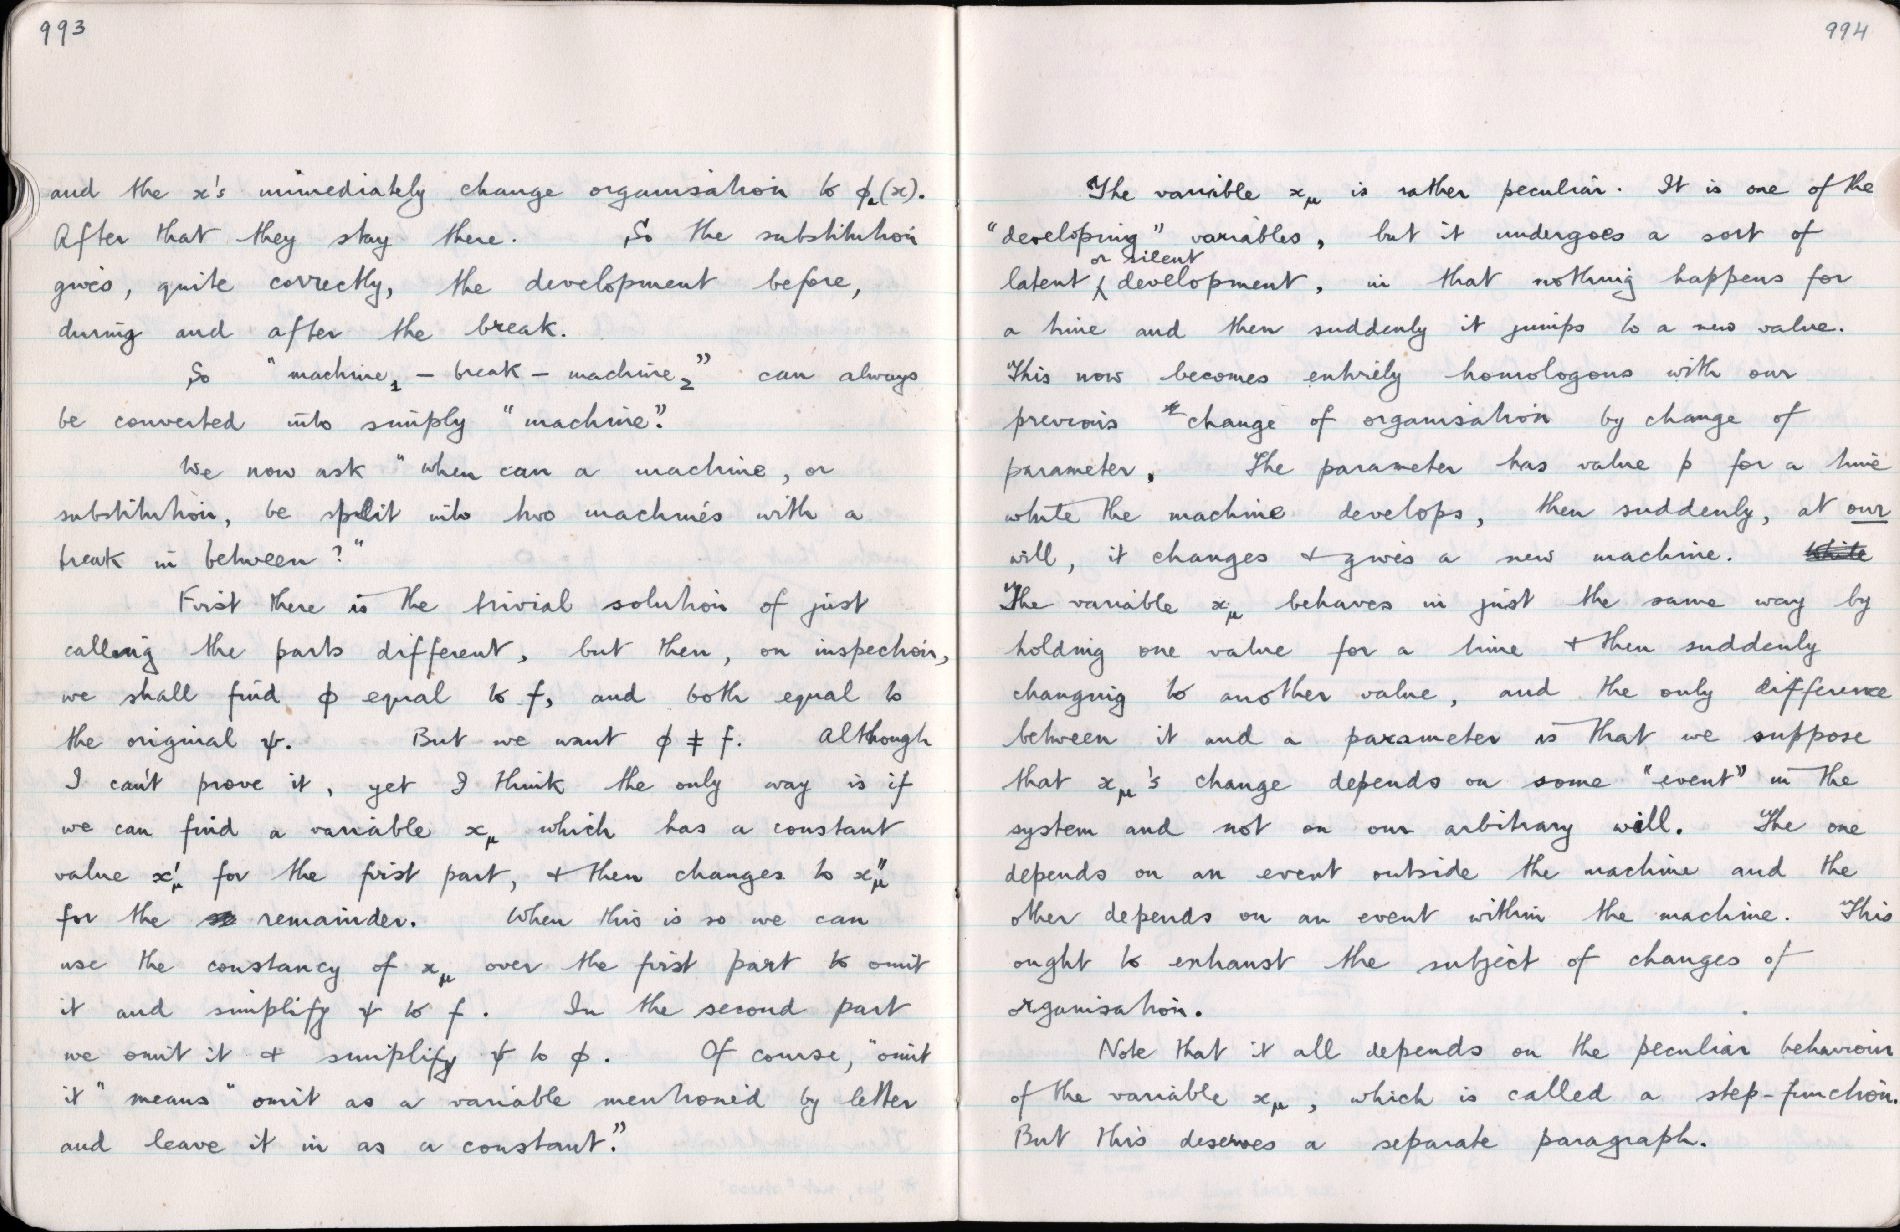 993
and the x's immediately change organisation to ϕμ(x).
After that they stay there. So the substitution
gives, quite correctly, the development before,
during and after the break.
So "machine₁ – break – machine₂" can always
be converted into simply "machine".
We now ask "when can a machine, or
substitution, be split into two machines with a
break in between?"
First there is the trivial solution of just
calling the parts different, but then, on inspection,
we shall find ϕ equal to f, and both equal to
the original ψ. But we want ϕ ≠ f. Although
I can't prove it, yet I think the only way is if
we can find a variable xμ which has a constant
value x'μ for the first part, & then changes to x"μ
for the remainder. When this is so we can
use the constancy of xμ over the first part to omit
it and simplify ψ to f. In the second part
we omit it & simplify ψ to ϕ. Of course, "omit
it" means "omit as a variable mentioned by letter
and leave it in as a constant."
994
The variable xμ is rather peculiar. It is one of the
"developing" variables, but it undergoes a sort of
or silent
latent ⁁ development, in that nothing happens for
a time and then suddenly it jumps to a new value.
This now becomes entirely homologous with our
previous change of organisation by change of
parameter. The parameter has value p for a time
while the machine develops, then suddenly, at our
will, it changes & gives a new machine. While
The variable xμ behaves in just the same way by
holding one value for a time & then suddenly
changing to another value, and the only difference
between it and a parameter is that we suppose
that xμ's change depends on some "event" in the
system and not on our arbitrary will. The one
depends on an event outside the machine and the
other depends on an event within the machine. This
ought to exhaust the subject of changes of
organisation.
Note that it all depends on the peculiar behaviour
of the variable xμ, which is called a step-function.
But this deserves a separate paragraph.